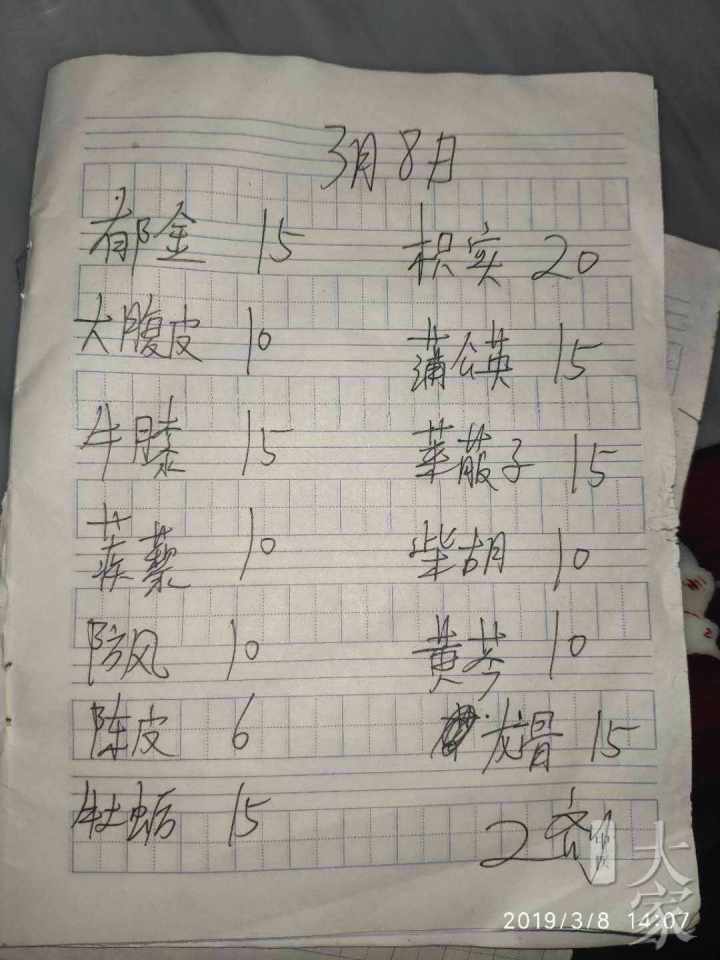 3月8日
郁金 15 枳实 20
大腹皮 10 蒲公英 15
牛膝 15 莱菔子 15
蒺藜 10 柴胡 10
防风 10 黄芩 10
陈皮 6 龙骨 15
牡蛎 15
2剂
大家
2019/3/8 14:07